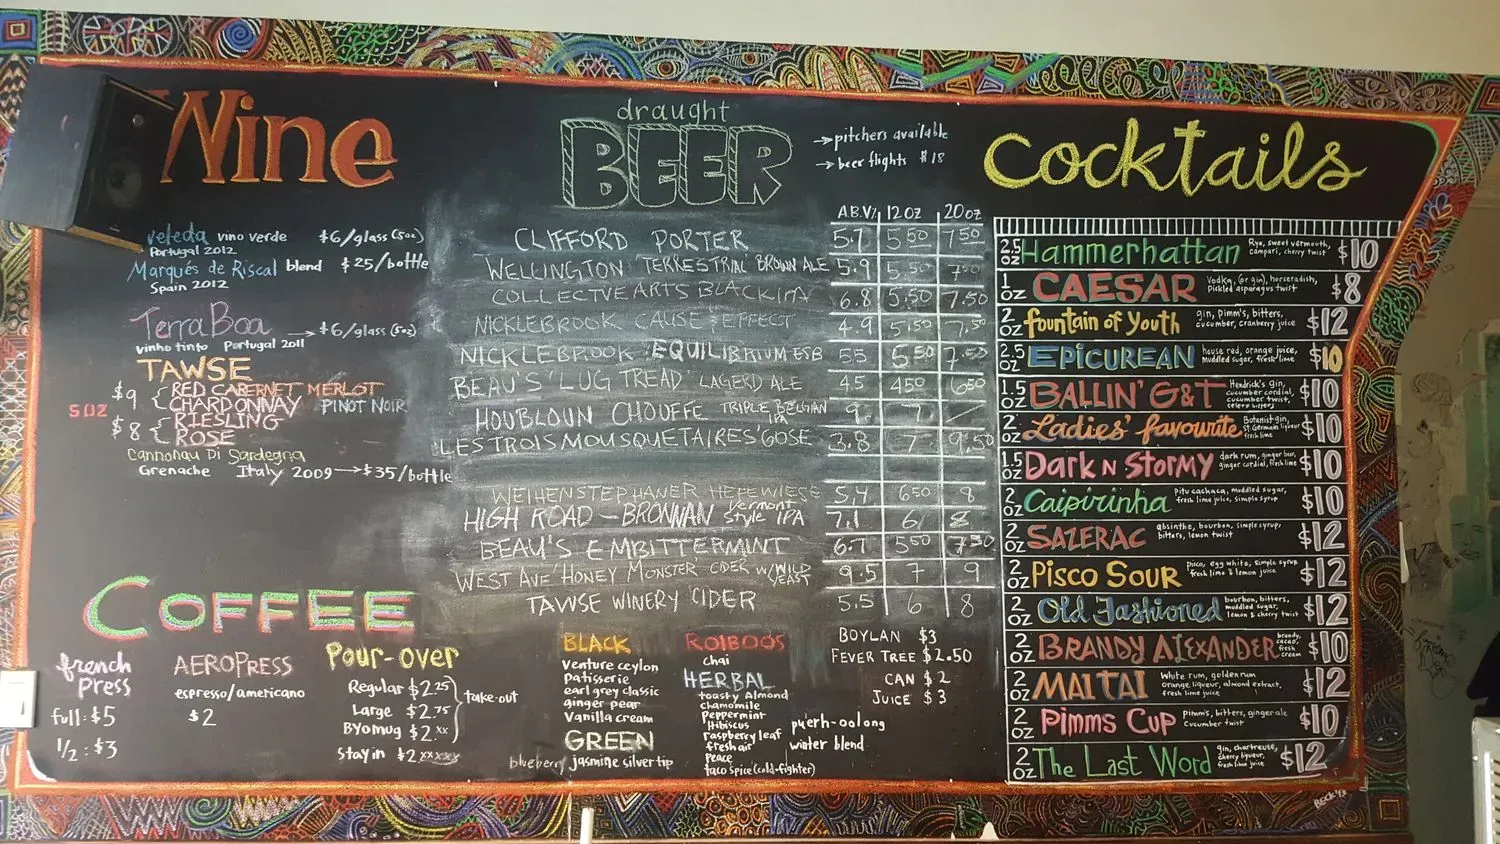 Wine
veleda vino verde $6/glass (5oz)
Portugal 2012
Marqués de Riscal blend $25/bottle
Spain 2012
Terra Boa → $6/glass (5oz)
vinho tinto Portugal 2011
TAWSE
5 OZ
$9 { RED CABERNET MERLOT
CHARDONNAY PINOT NOIR
$8 { RIESLING
ROSÉ
Cannonau Di Sardegna
Grenache Italy 2009 → $35/bottle
COFFEE
french press
full: $5
1/2: $3
AEROPRESS
espresso/americano
$2
Pour-over
Regular $2.25
Large $2.75
BYOmug $2.xx
take-out
stay in $2
draught
BEER
→ pitchers available
→ beer flights $18
A.B.V% 12oz 20oz
CLIFFORD PORTER 5.7 5.50 7.50
WELLINGTON 'TERRESTRIAL' BROWN ALE 5.9 5.50 7.50
COLLECTIVE ARTS BLACK IPA 6.8 5.50 7.50
NICKLEBROOK CAUSE & EFFECT 4.9 5.50 7.50
NICKLEBROOK EQUILIBRIUM ESB 5.5 5.50 7.50
BEAU'S 'LUG TREAD' LAGERD ALE 4.5 4.50 6.50
HOUBLOUN CHOUFFE TRIPLE BELGIAN IPA 9 7
LES TROIS MOUSQUETAIRES 'GOSE' 3.8 7 9.50
WEIHENSTEPHANER HEFEWIESE 5.4 6.50 8
HIGH ROAD - BRONNAN Vermont Style IPA 7.1 6 8
BEAU'S EMBITTERMINT 6.7 5.50 7.50
WEST AVE 'HONEY MONSTER' CIDER W/WILD YEAST 9.5 7 9
TAWSE WINERY CIDER 5.5 6 8
BLACK
Venture ceylon
Patisserie
earl grey classic
ginger pear
Vanilla cream
GREEN
blueberry jasmine silver tip
ROIBOOS
chai
HERBAL
toasty Almond
chamomile
Peppermint
Hibiscus
raspberry leaf
fresh air
peace
taco spice (cold-fighter)
puerh-oolong
winter blend
BOYLAN $3
FEVER TREE $2.50
CAN $2
JUICE $3
Cocktails
2.5 OZ Hammerhattan Rye, sweet vermouth, campari, cherry twist $10
1 OZ CAESAR Vodka, (or gin), horseradish, Pickled asparagus twist $8
2 OZ fountain of youth gin, Pimm's, bitters, cucumber, cranberry juice $12
2.5 OZ EPICUREAN house red, orange juice, muddled sugar, fresh lime $10
1.5 OZ BALLIN' G&T Hendrick's gin, cucumber cordial, cucumber twist, celery bitters $10
2 OZ Ladies' favourite Botanist gin, St Germain liqueur fresh lime $10
1.5 OZ Dark N Stormy dark rum, ginger beer, ginger cordial, fresh lime $10
2 OZ Caipirinha Pitu cachaca, muddled sugar, fresh lime juice, simple syrup $10
2 OZ SAZERAC absinthe, bourbon, simple syrup, bitters, lemon twist $12
2 OZ Pisco Sour Pisco, egg white, simple syrup fresh lime & lemon juice $12
2 OZ Old Fashioned bourbon, bitters, muddled sugar, lemon & cherry twist $12
2 OZ BRANDY ALEXANDER brandy, cacao, fresh cream $10
2 OZ MAI TAI White rum, golden rum orange, liqueur, almond extract, fresh lime juice $12
2 OZ Pimms Cup Pimm's, bitters, ginger ale cucumber twist $10
2 OZ The Last Word gin, chartreuse, cherry liqueur, fresh lime juice $12
BECK '13